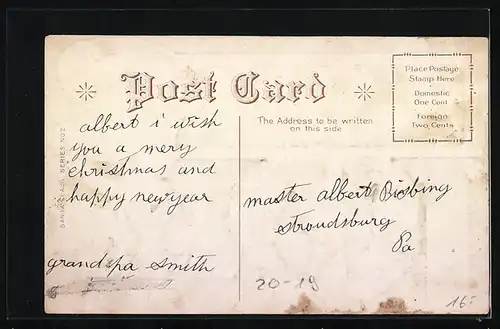 Post Card
Place Postage
Stamp Here
Domestic
One Cent
Foreign
Two Cents
The Address to be written
on this side
SERIES NO 2
albert i wish
you a mery
christmas and
happy newyear
grandspa smith
master albert Bisbing
stroudsburg
Pa
20-19
16.-